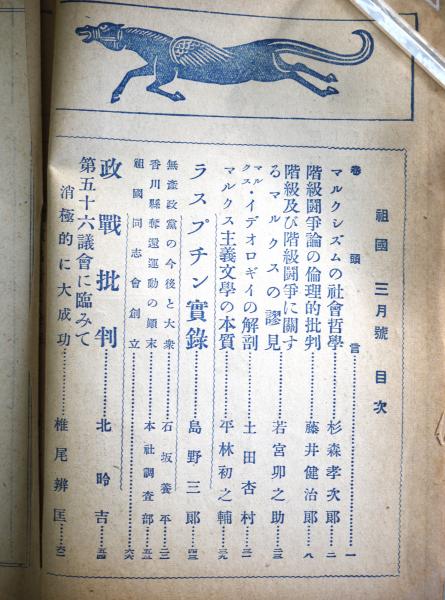 祖國 三月號 目次
卷頭言……一
マルクシズムの社會哲學……杉森孝次郎…二
階級鬪爭論の倫理的批判……藤井健治郎…八
階級及び階級鬪爭に關するマルクスの謬見……若宮卯之助…二三
マルクス・イデオロギイの解剖……土田杏村…三一
マルクス主義文學の本質……平林初之輔…三九
ラスプチン實錄……島野三郎…四三
無產政黨の今後と大衆……石坂養平…二二
香川縣奪還運動の顚末……本社調査部…五三
祖國同志會創立……六六
政戰批判……北昤吉…五四
第五十六議會に臨みて
消極的に大成功……椎尾辨匡…六二